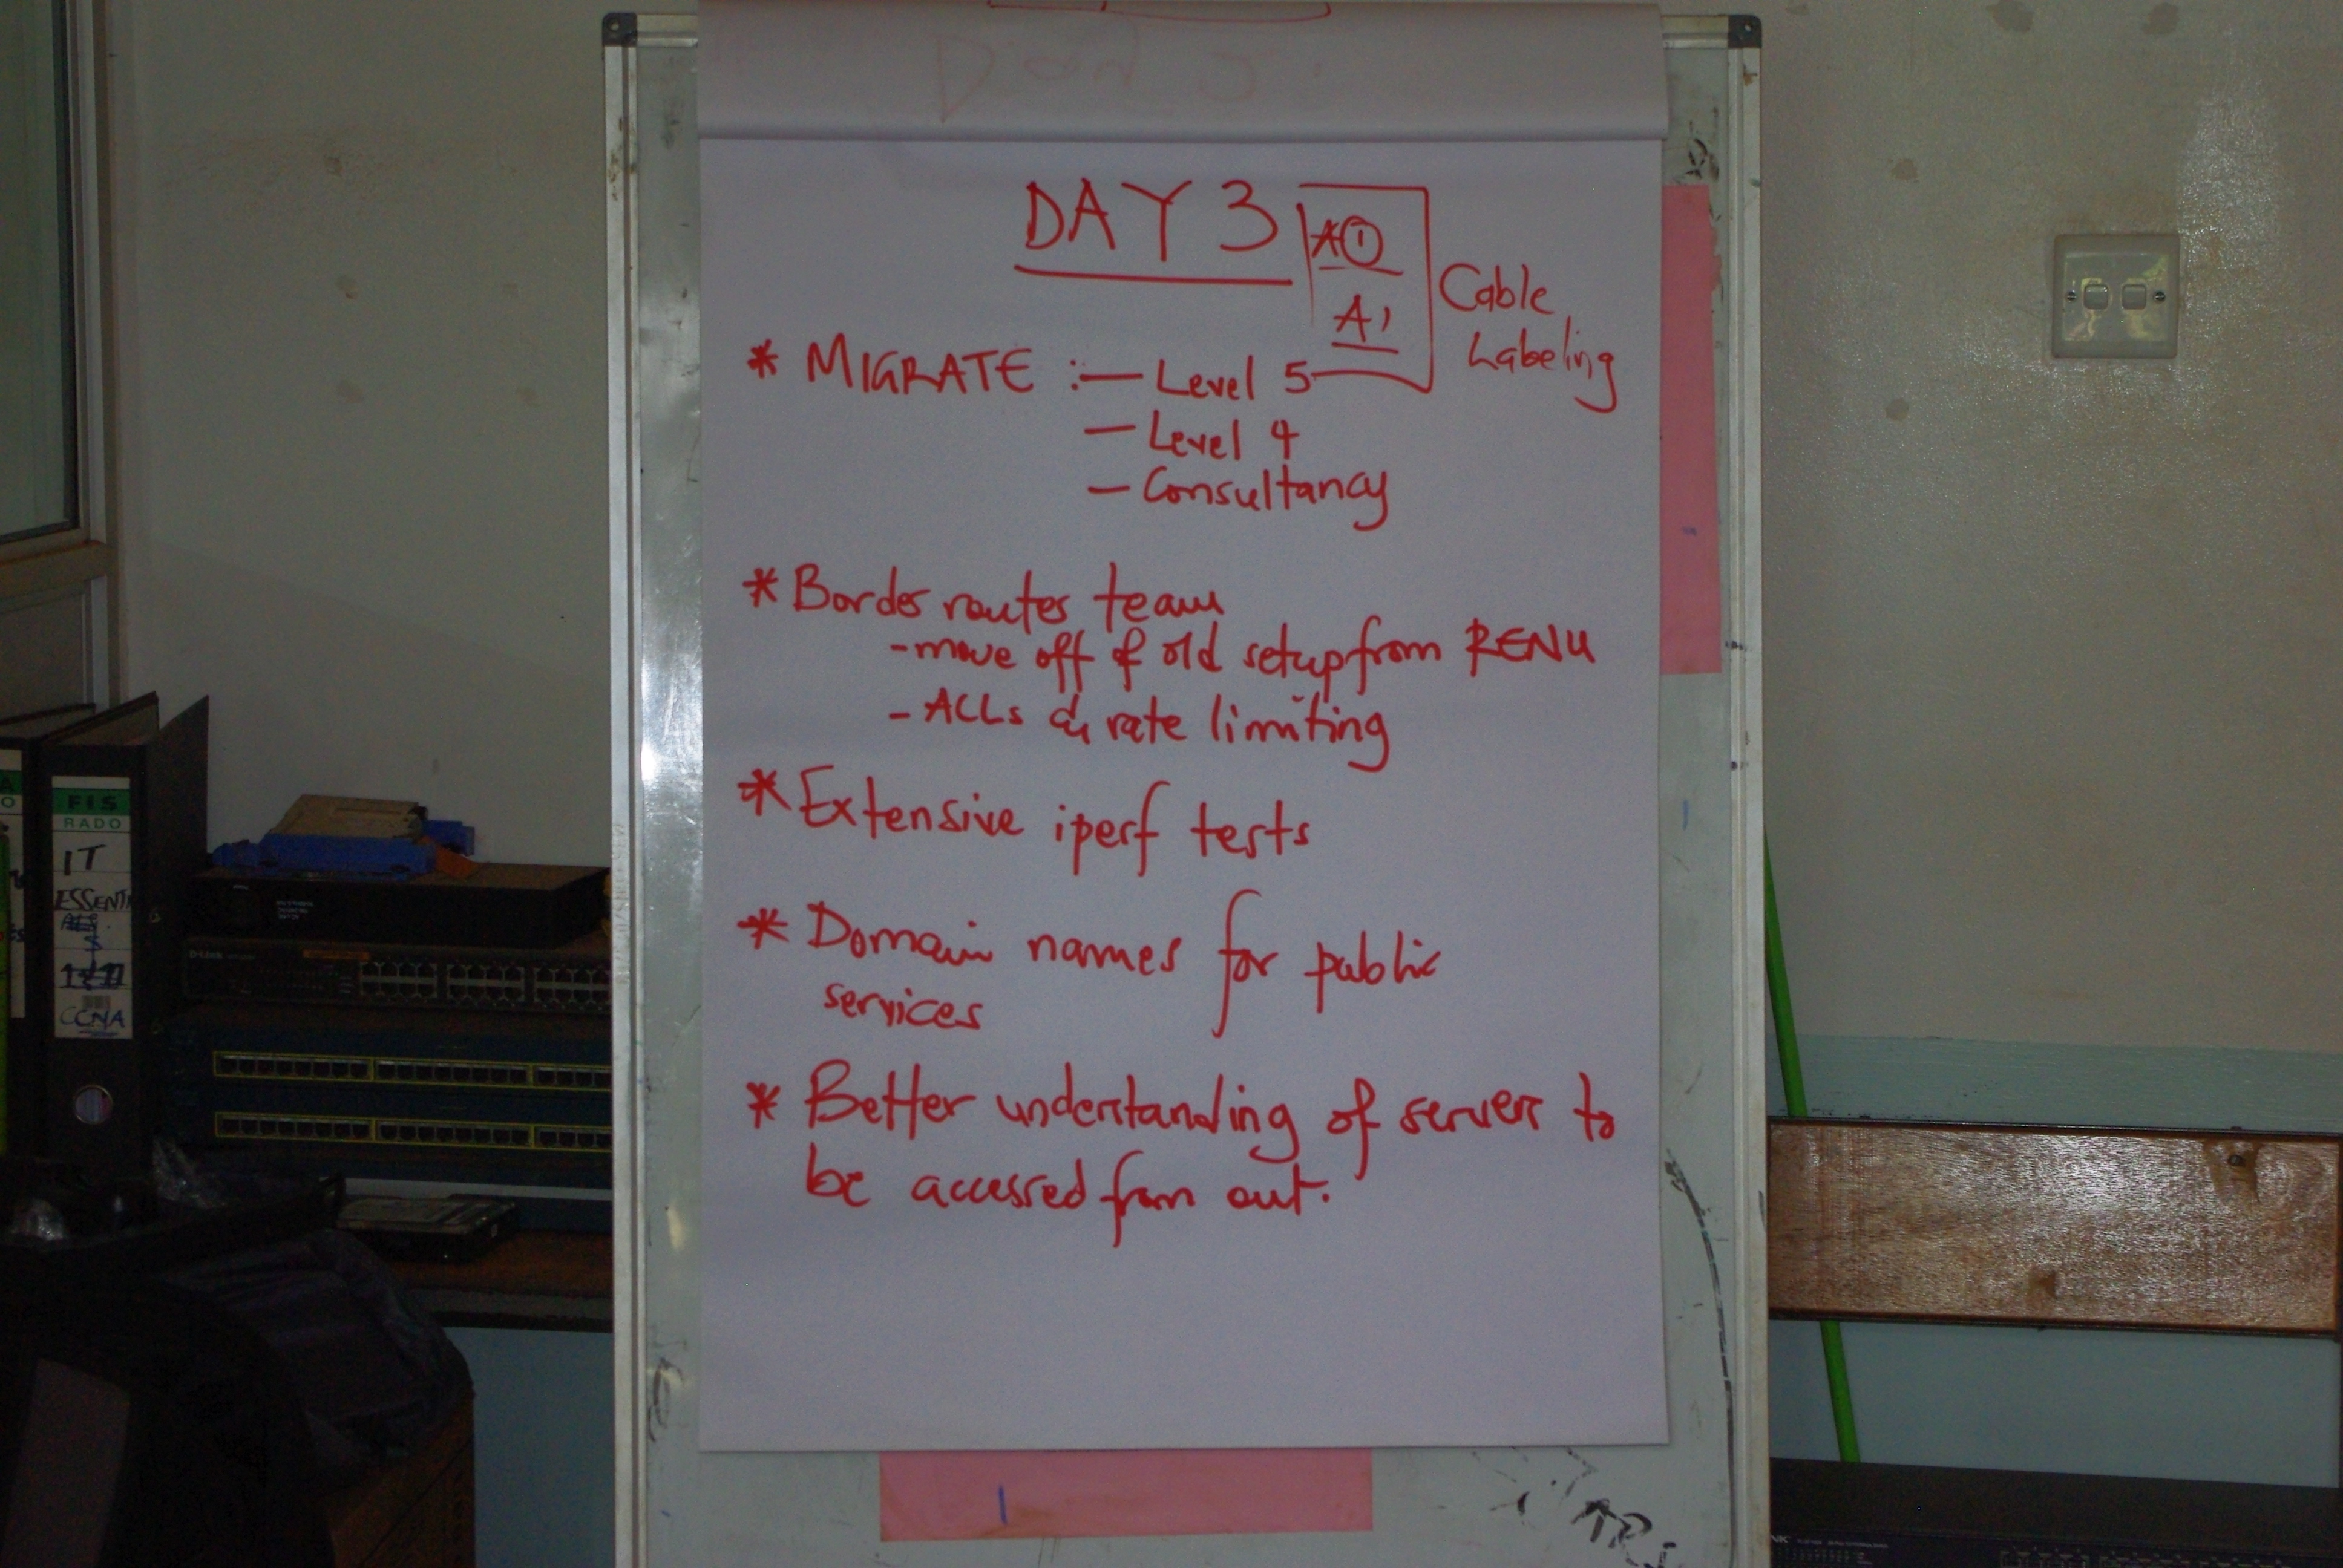 DAY 3
A①
A1
Cable
Labeling
* MIGRATE :- — Level 5
— Level 4
— Consultancy
* Border routes team
- move off of old setup from RENU
- ACLs & rate limiting
* Extensive iperf tests
* Domain names for public
services
* Better understanding of servers to
be accessed from out.
FIS
RADO
IT
ESSENTI
CCNA
D-Link